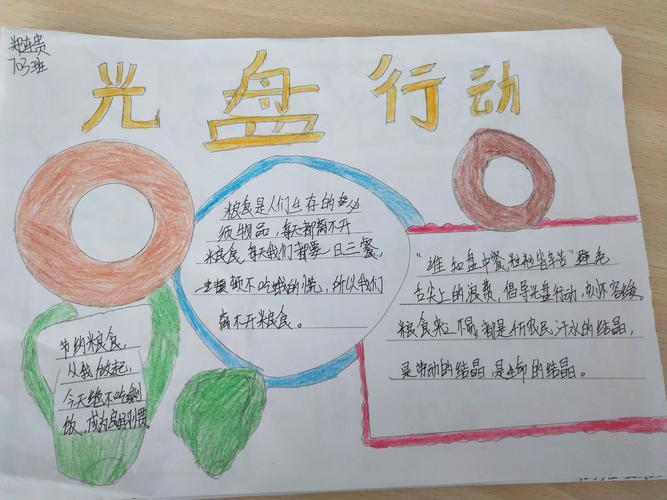 703班
光盘行动
粮食是人们生存的必
须物品，每天都离不开
粮食，每天我们都要一日三餐，
顿不吃饿的慌，所以我们
离不开粮食。
节约粮食，
从我做起，
今天绝不吃剩
饭，成为良好习惯
"谁知盘中餐，粒粒皆辛苦"避免
舌尖上的浪费，倡导光盘行动，
粮食来之不易，都是千万农民汗水的结晶，
是劳动的结晶，是生命的结晶。